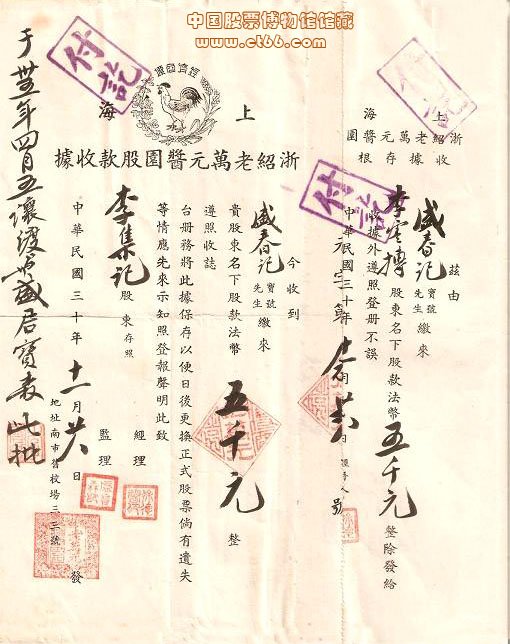 中国股票博物馆馆藏
www.ct66.com
上海
浙紹老萬元醬園股款收據
收據存根
茲由
盛春記寶號先生繳來
李 股東名下股款法幣五千元整除發給
收據外遵照登册不誤
中華民國三十年 月 日 經手人 號
付訖
付訖
付訖
上海
經濟
浙紹老萬元醬園股款收據
今收到
盛春記寶號先生繳來
貴股東名下股款法幣五千元整
遵照收誌
台册務將此據保存以便日後更換正式股票倘有遺失
等情應先來示知照登報聲明此致
李集記股東存照
經理
監理
中華民國三十年十一月廿八日 發
地址南市舊校場三三號
于卅五年四月五 讓渡 盛君寶 此批